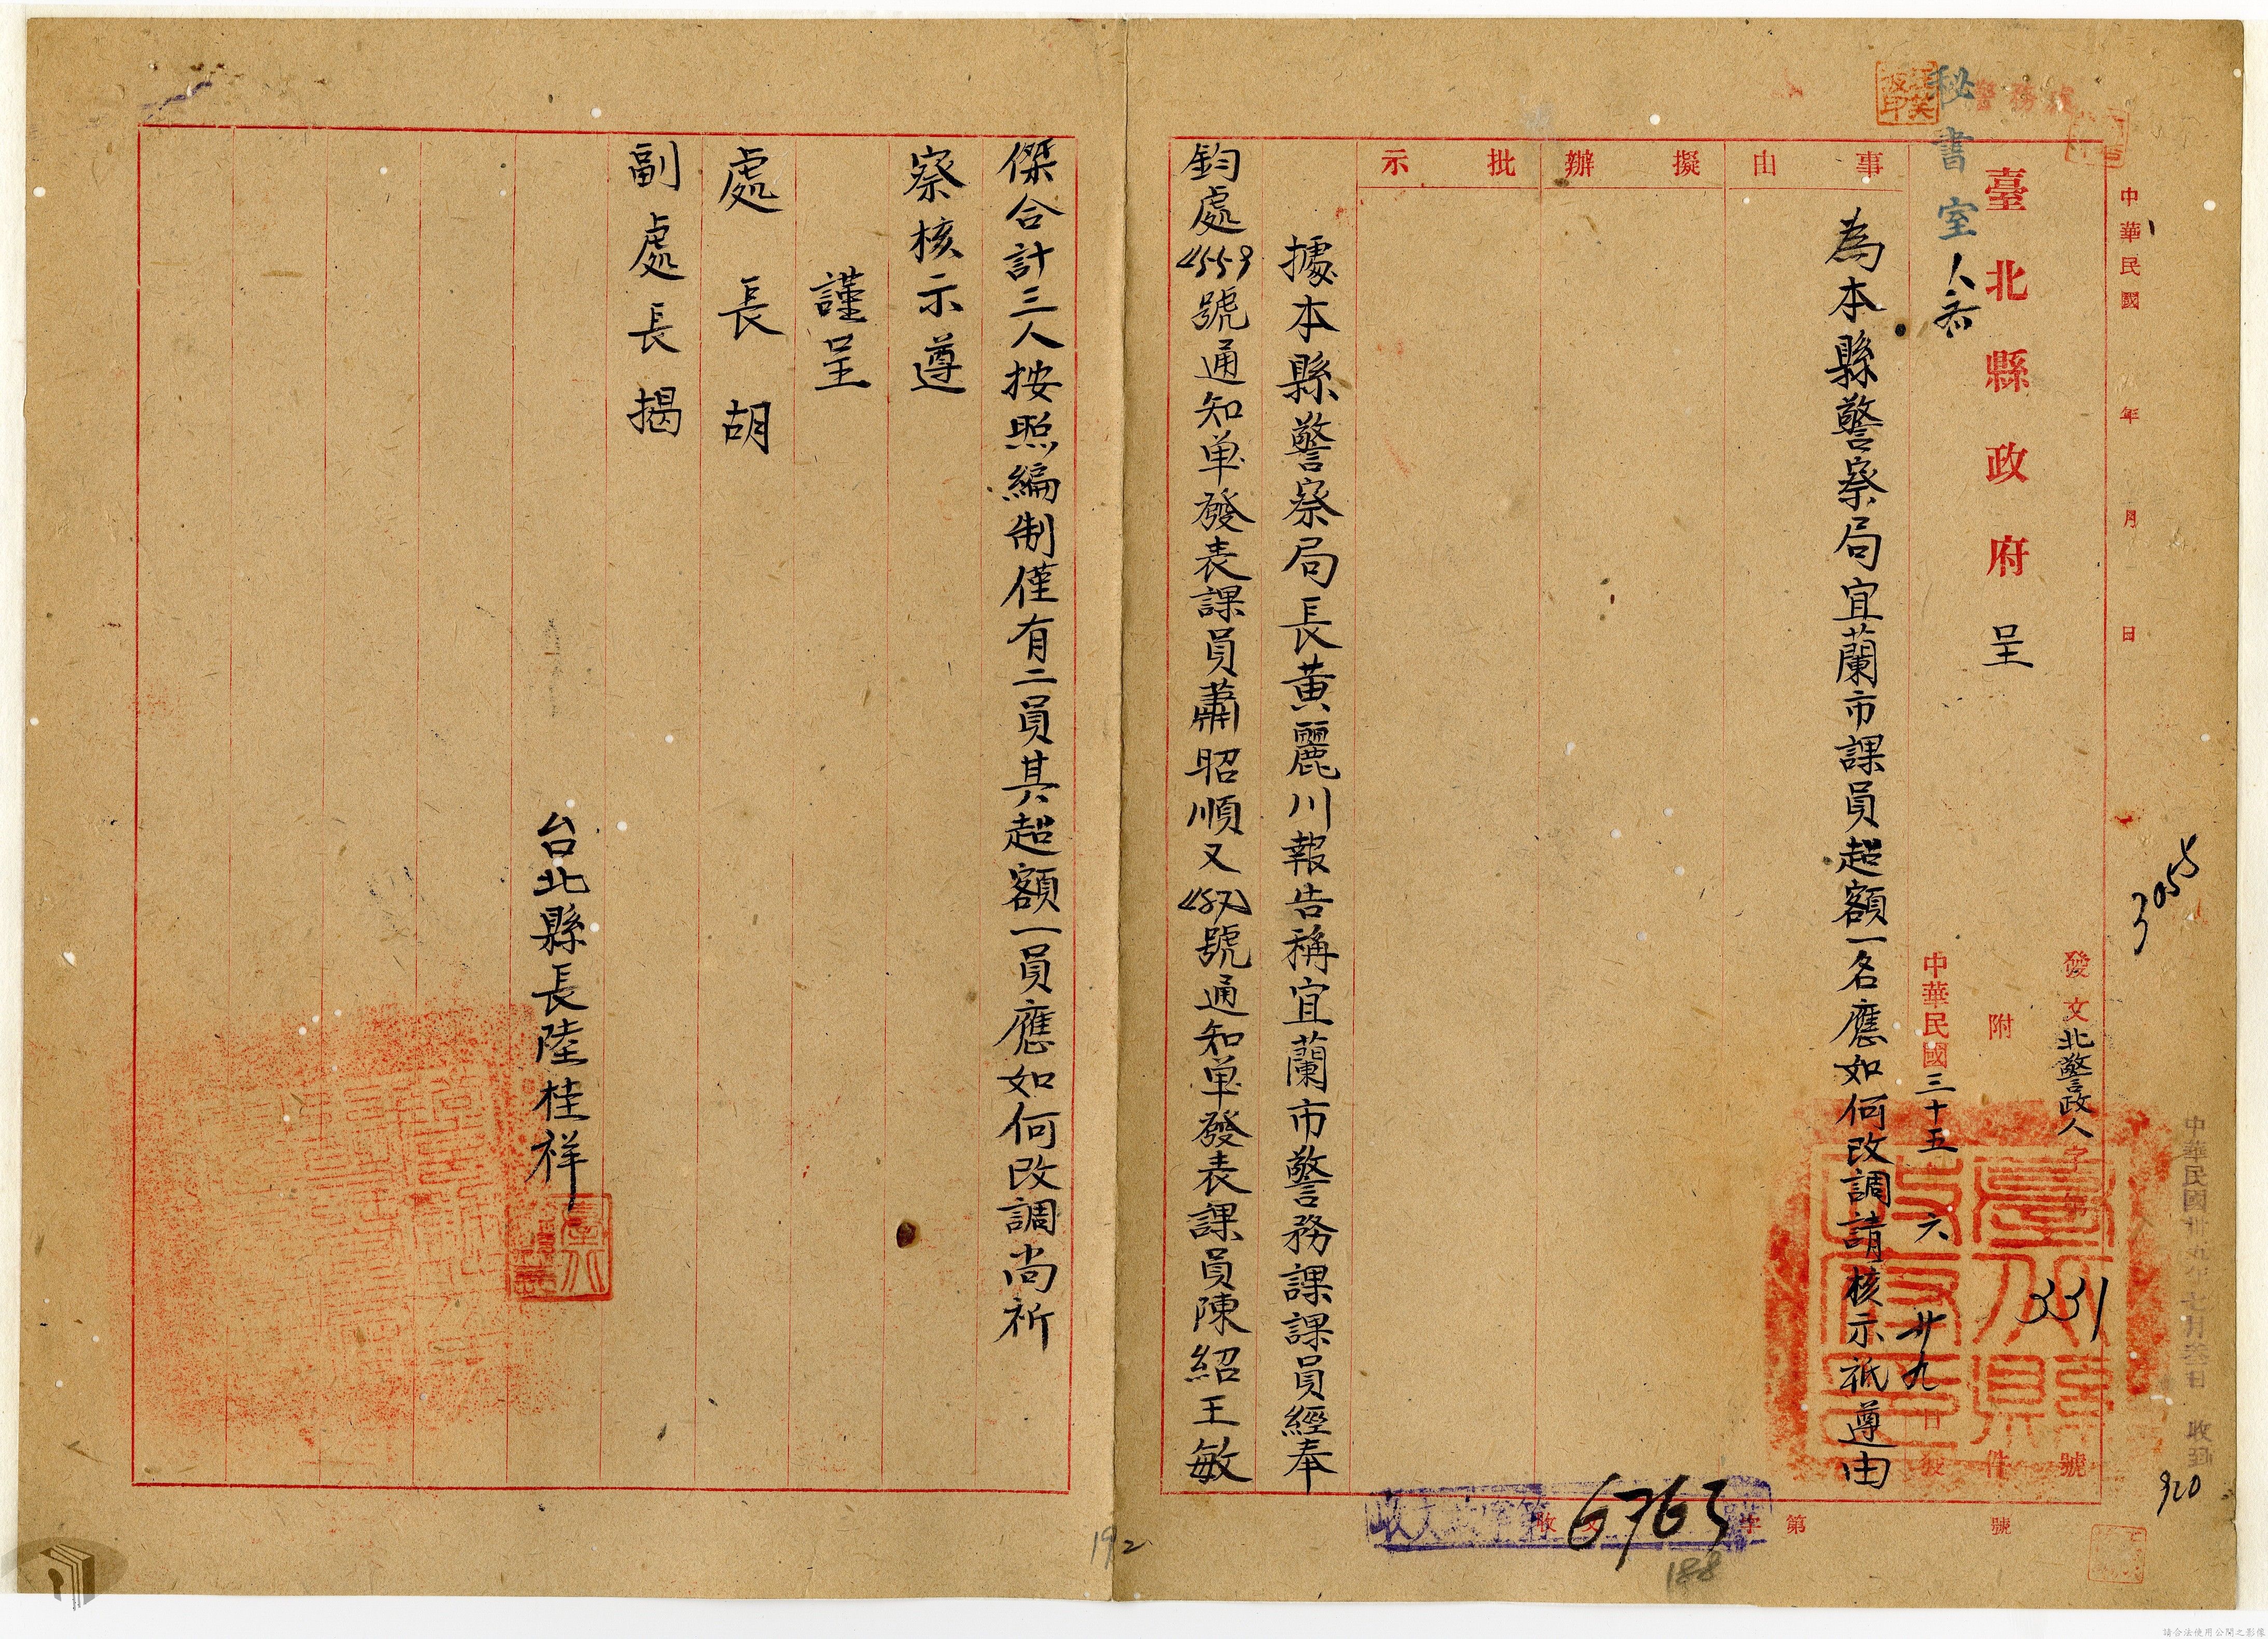 中華民國 年 月 日
3055
發文北警政人字第331號
臺北縣政府 呈
附 件
秘書室
中華民國三十五 六 廿九日發
警務處
事由
擬辦
批示
為本縣警察局宜蘭市課員超額一名應如何改調請核示祇遵由
據本縣警察局長黃麗川報告稱宜蘭市警務課課員經奉
鈞處4559號通知单發表課員蕭昭順又號通知单發表課員陳紹王敏
傑合計三人按照編制僅有二員其超額一員應如何改調尚祈
察核示遵
謹呈
處長胡
副處長揭
台北縣長陸桂祥
中華民國卅五年七月 日 收到
920
收文 字第 號
6763
188
192
請合法使用公開之影像